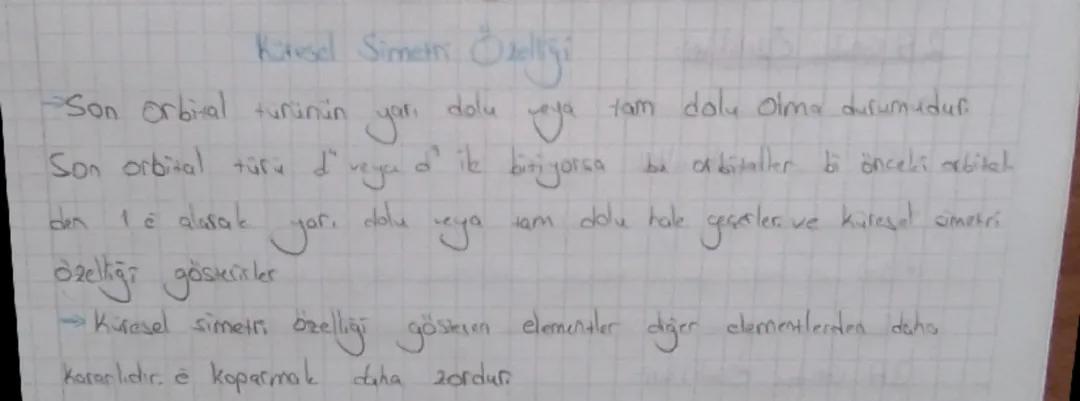 Küresel Simetri Özelliği
→ Son orbital türünün yarı dolu veya tam dolu olma durumudur.
Son orbital türü d⁴ veya d⁹ ile bitiyorsa bu orbitaller bi önceki orbital
den 1 e⁻ alarak yarı dolu veya tam dolu hale geçerler ve küresel simetri
özelliği gösterirler
→ Küresel simetri özelliği gösteren elementler diğer elementlerden daha
kararlıdır. e⁻ koparmak daha zordur.